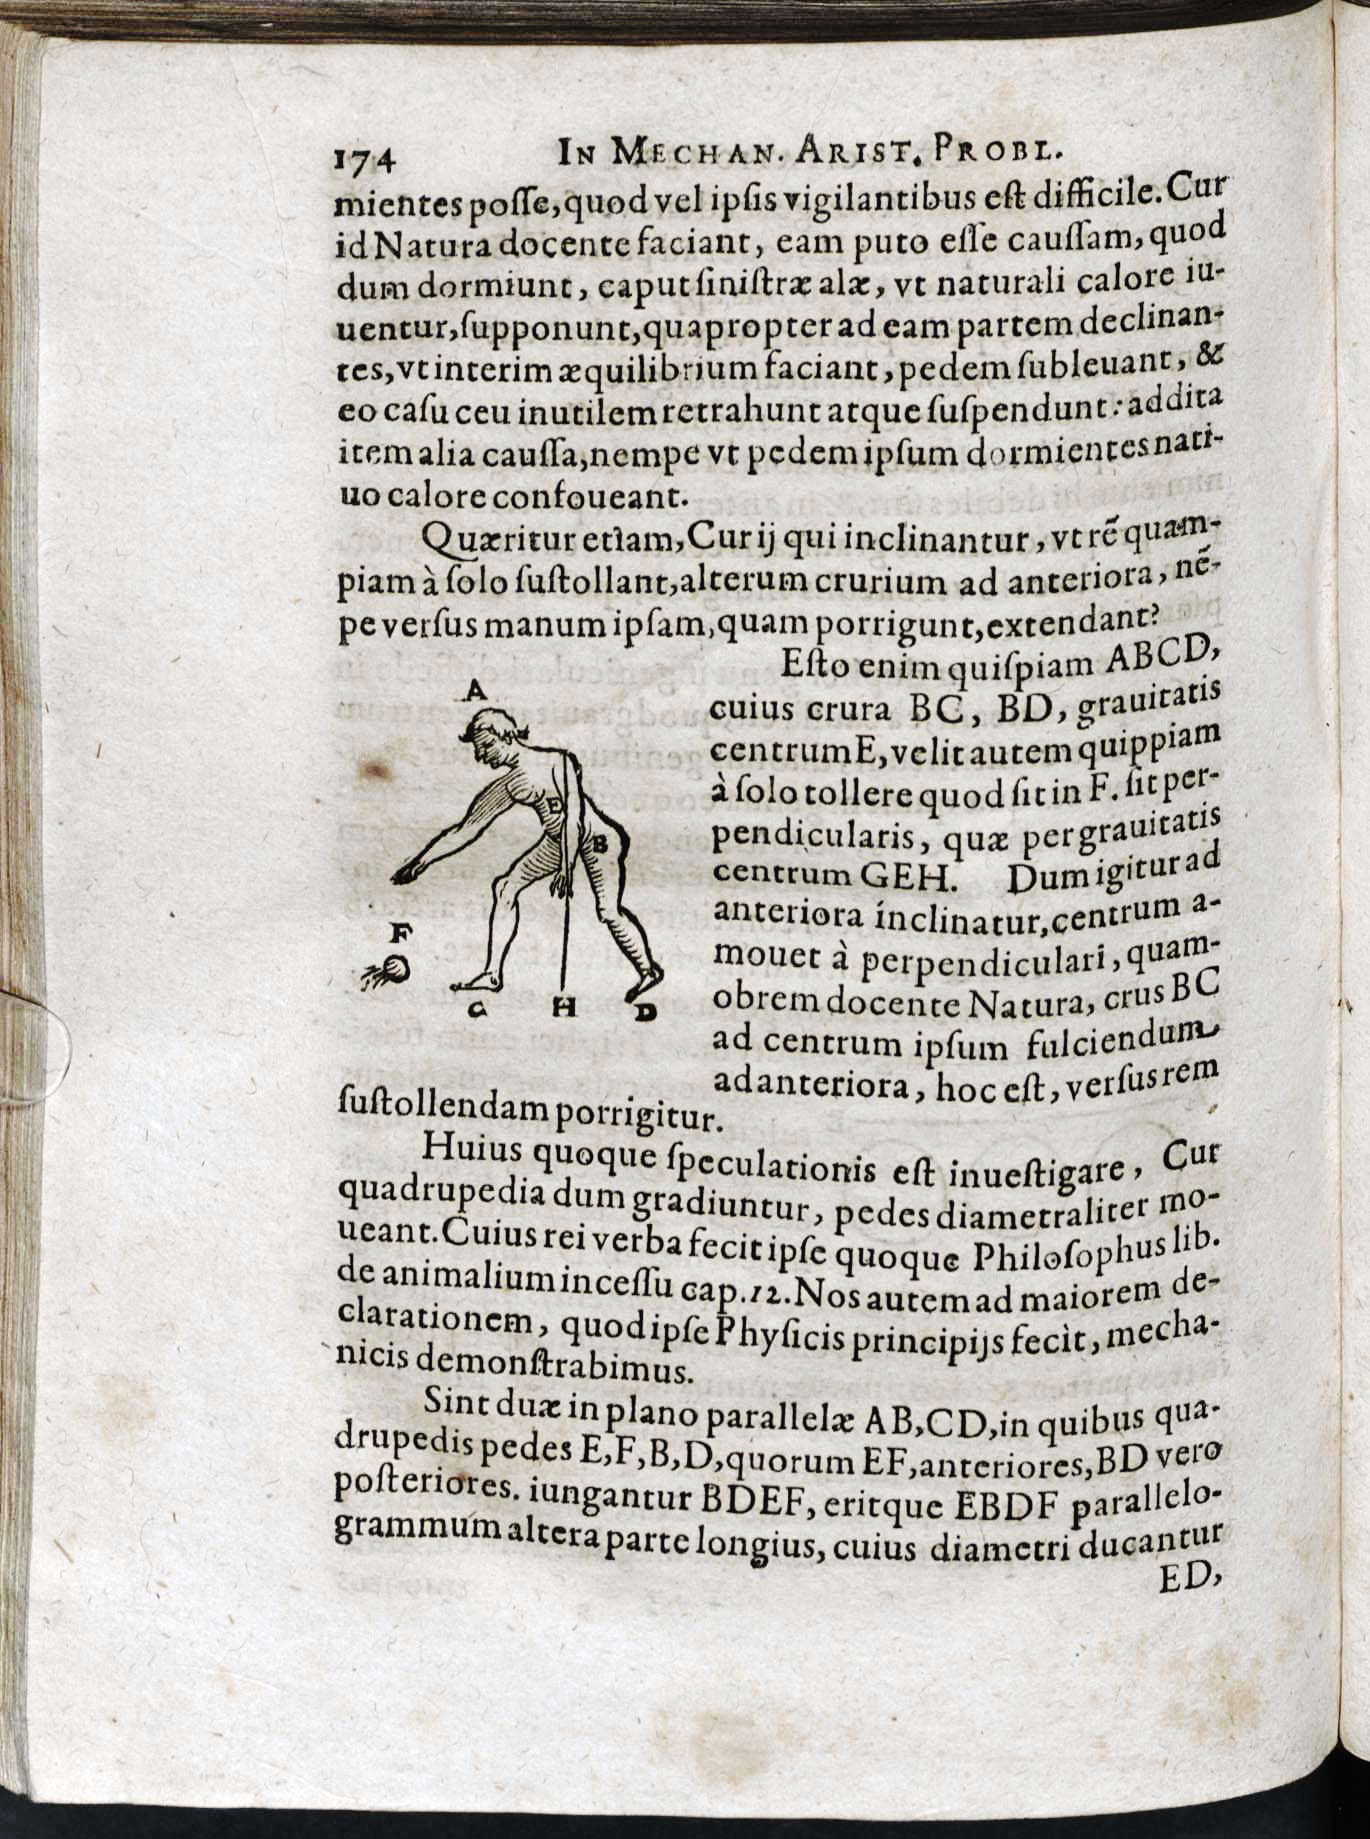 174 IN MECHAN. ARIST. PROBL.
mientes poſſe, quod vel ipſis vigilantibus eſt difficile. Cur
id Natura docente faciant, eam puto eſſe cauſſam, quod
dum dormiunt, caput ſiniſtræ alæ, vt naturali calore iu-
uentur, ſupponunt, quapropter ad eam partem declinan-
tes, vt interim æquilibrium faciant, pedem ſubleuant, &
eo caſu ceu inutilem retrahunt atque ſuſpendunt: addita
item alia cauſſa, nempe vt pedem ipſum dormientes nati-
uo calore confoueant.
Quæritur etiam, Cur ij qui inclinantur, vt rẽ quam-
piam à ſolo ſuſtollant, alterum crurium ad anteriora, nẽ-
pe verſus manum ipſam, quam porrigunt, extendant?
Eſto enim quiſpiam ABCD,
cuius crura BC, BD, grauitatis
centrum E, velit autem quippiam
à ſolo tollere quod ſit in F. ſit per-
pendicularis, quæ per grauitatis
centrum GEH. Dum igitur ad
anteriora inclinatur, centrum a-
mouet à perpendiculari, quam-
obrem docente Natura, crus BC
ad centrum ipſum fulciendum
ad anteriora, hoc eſt, verſus rem
A
E
B
F
C
H
D
ſuſtollendam porrigitur.
Huius quoque ſpeculationis eſt inueſtigare, Cur
quadrupedia dum gradiuntur, pedes diametraliter mo-
ueant. Cuius rei verba fecit ipſe quoque Philoſophus lib.
de animalium inceſſu cap. 12. Nos autem ad maiorem de-
clarationem, quod ipſe Phyſicis principijs fecit, mecha-
nicis demonſtrabimus.
Sint duæ in plano parallelæ AB, CD, in quibus qua-
drupedis pedes E, F, B, D, quorum EF, anteriores, BD vero
poſteriores. iungantur BDEF, eritque EBDF parallelo-
grammum altera parte longius, cuius diametri ducantur
ED,